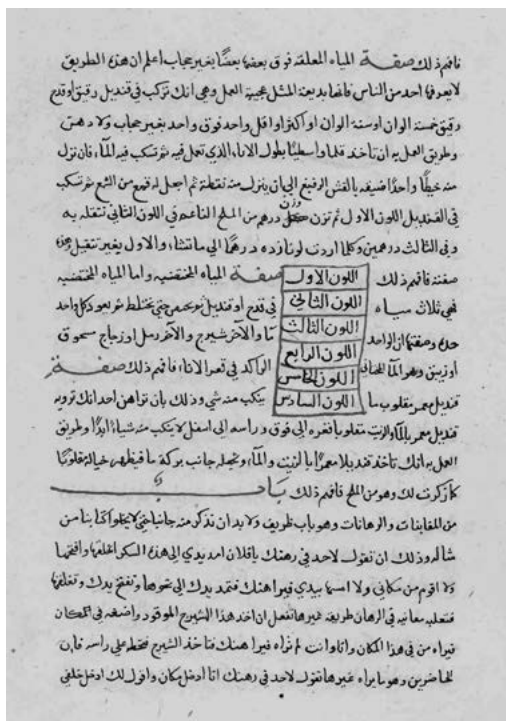 فافهم ذلك صفة المياه المعلقة فوق بعضها بعضًا بغير حجاب اعلم ان هذه الطريق
لا يعرفها احد من الناس فانها بديعة المثل عجيبة العمل وهي انك تركب في قنديل رقيق او قدح
رقيق خمسة الوان او ستة الوان او اكثر او اقل واحد فوق واحد بغير حجاب ولا دهن
وطريق العمل به ان تاخذ قلما واسطيا بطول الاناء الذي تعمل فيه ثم تسكب فيه الماء فان نزل
منه خيطًا واحدًا ضيقه بالقش الرفيع الى ان ينزل منه نقطة ثم اجعل له قمع من الشمع ثم تسكب
في القنديل اللون الاول ثم تزن وزن درهم من الملح الناعم في اللون الثاني تثقله به
وفي الثالث درهمين وكلما اردت لونا زده درهما الى ما تشاء والاول بغير تثقيل وهذه
صفته فافهم ذلك صفة المياه المختفية واما المياه المختفية
اللون الاول
اللون الثاني
اللون الثالث
اللون الرابع
اللون الخامس
اللون السادس
فهي ثلاث مياه في قدح او قنديل ثم تختلط ثم يعود كل واحد
حده وصفتها ان الواحد ماء والاخر شيرج والاخر رمل او زجاج مسحوق
او زيبق وهو الماء الراكد في قعر الاناء فافهم ذلك صفة
قنديل معمر مقلوب ما ينكب منه شي وذلك بان تراهن احد انك تريه
قنديل معمر بالماء والزيت مقلوبا قعره الى فوق وراسه الى اسفل لا ينكب منه شياء ابدًا وطريق
العمل به انك تاخذ قنديلا معمرًا بالزيت والماء وتجعله جانب بركة ما فيظهر خياله مقلوبًا
كما ذكرت لك وهو من الملح فافهم ذلك باب
من المغابنات والرهانات وهو باب ظريف ولا بد ان نذكر منه جانبا حتى لا يخلو كتابنا من
شاله وذلك ان تقول لاحد في رهنك يا فلان امد يدي الى هذه السكر اغلقها وافتحها
ولا اقوم من مكاني ولا امسها بيدي فيراهنك فتمد يدك الى نحوها وتفتح يدك وتغلقها
فتغلبه معانيه في الرهان طريقة غيرها تفعل ان اخد هذا الشيرج الموقود واضعه في مكان
فيراه من في هذا المكان واناوانت لم نراه فيراهنك فتاخذ الشيرج فتحطه على راسه فان
الحاضرين وهو ما يراه غيرها تقول لاحد في رهنك انا ادخل مكان واقول لك ادخل خلفي